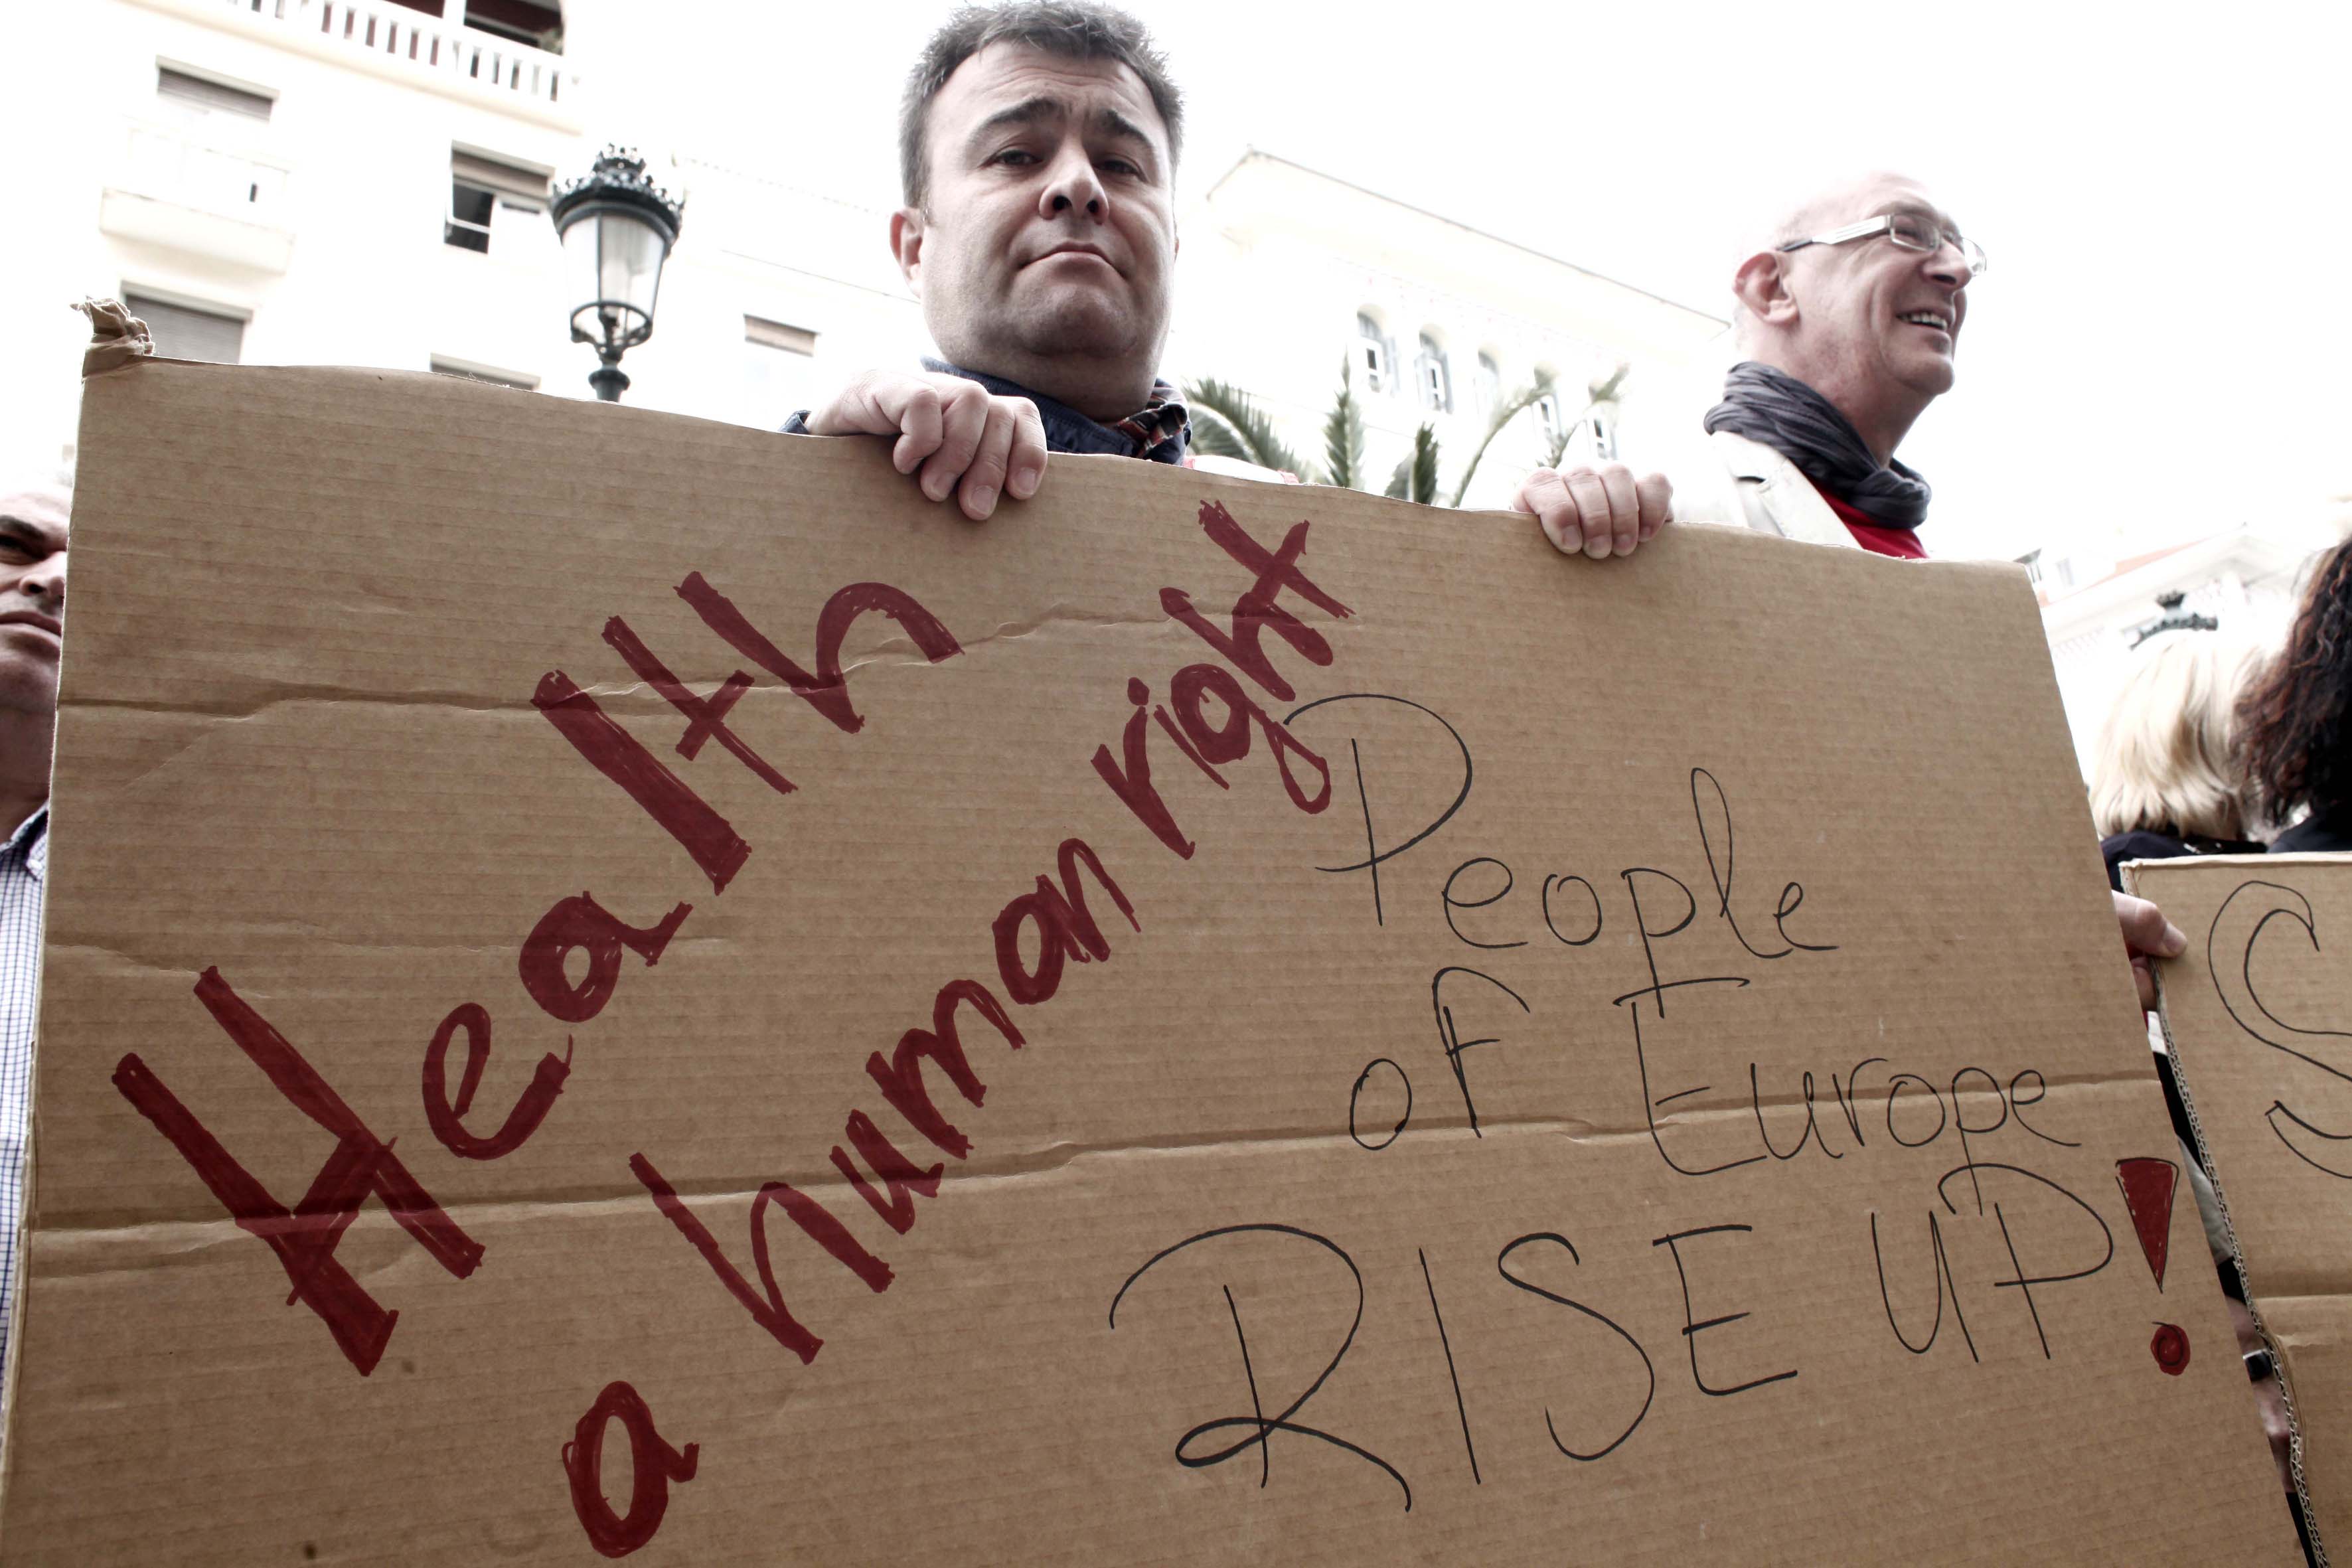 Health
a human right
People
of Europe
RISE UP!
S